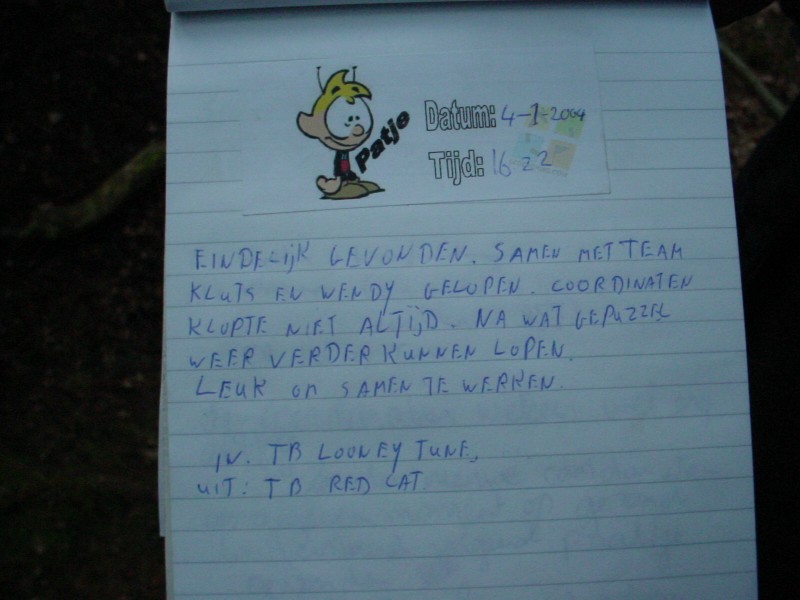 Patje
Datum: 4-1-2004
Tijd: 16 22
EINDELIJK GEVONDEN. SAMEN MET TEAM
KLUTS EN WENDY GELOPEN. COORDINATEN
KLOPTE NIET ALTIJD. NA WAT GEPUZZEL
WEER VERDER KUNNEN LOPEN.
LEUK OM SAMEN TE WERKEN.
IN. TB LOONEY TUNE.
UIT: TB RED CAT.